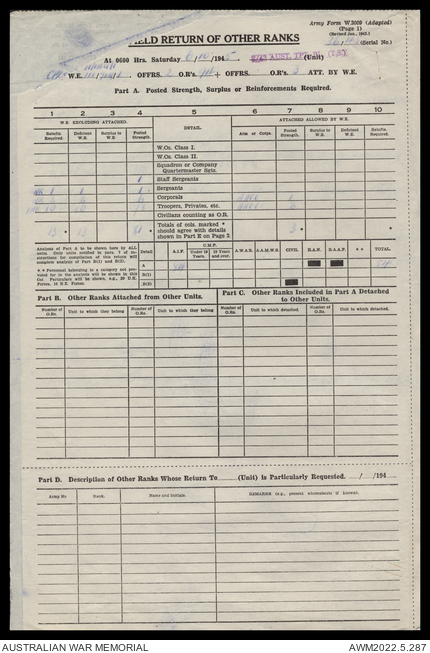 Army Form W.3009 (Adapted)
(Page 1)
(Revised Jan., 1943.)
FIELD RETURN OF OTHER RANKS
(Serial No.)
At 0600 Hrs. Saturday / /1945 (Unit)
W.E. OFFRS. 2 O.R's. + OFFRS. O.R's. 3 ATT. BY W.E.
Part A. Posted Strength, Surplus or Reinforcements Required.
1 2 3 4 5 6 7 8 9 10
W.E. EXCLUDING ATTACHED. ATTACHED ALLOWED BY W.E.
Reinfts. Required. Deficient W.E. Surplus to W.E. Posted Strength. DETAIL. Arm or Corps. Posted Strength. Surplus to W.E. Deficient W.E. Reinfts. Required.
W.Os. Class I.
W.Os. Class II.
Squadron or Company Quartermaster Sgts.
1 Staff Sergeants
Sergeants
Corporals
Troopers, Privates, etc.
Civilians counting as O.R.
13 * 13 * Totals of cols. marked * should agree with details shown in Part E on Page 2 3 *
Analysis of Part A to be shown here by ALL Units.
Detail A.I.F. C.M.F. Under 19 Years. 19 Years and over. A.W.A.S. A.A.M.W.S. CIVIL R.A.N. R.A.A.F. * * TOTAL
A
B(1)
B(2)
* * Personnel belonging to a company not provided for in the analysis will be shown in this Col. Particulars will be shown, e.g., 20 U.K. Forces, 16 N.Z. Forces.
Part B. Other Ranks Attached from Other Units.
Part C. Other Ranks Included in Part A Detached to Other Units.
Number of O.Rs. Unit to which they belong Number of O.Rs. Unit to which they belong Number of O.Rs. Unit to which detached. Number of O.Rs. Unit to which detached.
Part D. Description of Other Ranks Whose Return To (Unit) is Particularly Requested. / /194
Army No Rank. Name and Initials. REMARKS (e.g., present whereabouts if known).
AUSTRALIAN WAR MEMORIAL AWM2022.5.287